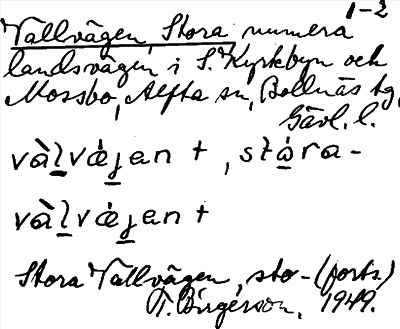 1-2
Vallvägen, Stora numera
landsvägen i S. Kyrkbyn och
Mossbo, Alfta sn, Bollnäs tg,
Gävl. l.
vàl̲vǽj̲an +, stå̲ra-
vàl̲vǽj̲an +
Stora Vallvägen, sto- (forts)
T. Birgerson, 1949.